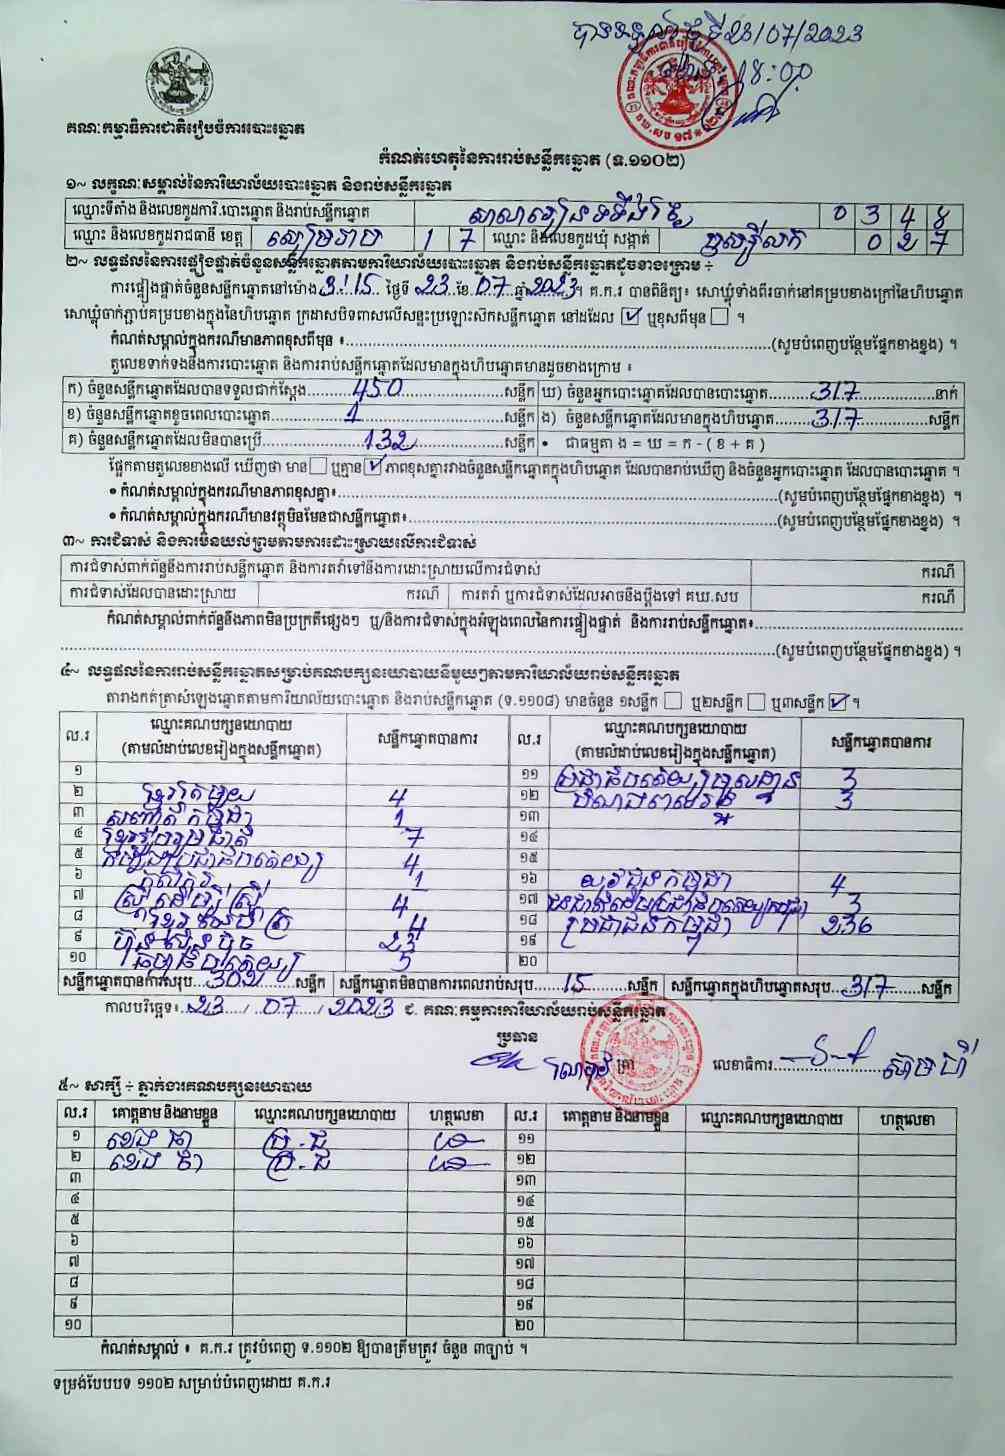 បានទទួលថ្ងៃទី23/07/2023
18:00
គណៈកម្មាធិការជាតិរៀបចំការបោះឆ្នោត
កំណត់ហេតុនៃការរាប់សន្លឹកឆ្នោត (ទ.១១០២)
១~ លក្ខណៈសម្គាល់នៃការិយាល័យបោះឆ្នោត និងរាប់សន្លឹកឆ្នោត
ឈ្មោះទីតាំង និងលេខកូដការិ.បោះឆ្នោត និងរាប់សន្លឹកឆ្នោត 0 3 4 8
ឈ្មោះ និងលេខកូដរាជធានី ខេត្ត សៀមរាប 1 7 ឈ្មោះ និងលេខកូដឃុំ សង្កាត់ 0 2 7
២~ លទ្ធផលនៃការផ្ទៀងផ្ទាត់ចំនួនសន្លឹកឆ្នោតតាមការិយាល័យបោះឆ្នោត និងរាប់សន្លឹកឆ្នោតដូចខាងក្រោម ÷
ការផ្ទៀងផ្ទាត់ចំនួនសន្លឹកឆ្នោតនៅម៉ោង 3:15 ថ្ងៃទី 23 ខែ 07 ឆ្នាំ 2023។ គ.ក.រ បានពិនិត្យ៖ សោឃ្លុំទាំងពីរចាក់នៅគម្របខាងក្រៅនៃហិបឆ្នោត
សោឃ្លុំចាក់ភ្ជាប់គម្របខាងក្នុងនៃហិបឆ្នោត ក្រដាសបិទពាសលើសន្ទះប្រឡោះសិកសន្លឹកឆ្នោត នៅដដែល ☑ ឬខុសពីមុន ☐ ។
កំណត់សម្គាល់ក្នុងករណីមានភាពខុសពីមុន ៖ (សូមបំពេញបន្ថែមផ្នែកខាងខ្នង) ។
តួលេខទាក់ទងនឹងការបោះឆ្នោត និងការរាប់សន្លឹកឆ្នោតដែលមានក្នុងហិបឆ្នោតមានដូចខាងក្រោម ៖
ក) ចំនួនសន្លឹកឆ្នោតដែលបានទទួលជាក់ស្ដែង 450 សន្លឹក ឃ) ចំនួនអ្នកបោះឆ្នោតដែលបានបោះឆ្នោត 317 នាក់
ខ) ចំនួនសន្លឹកឆ្នោតខូចពេលបោះឆ្នោត 1 សន្លឹក ង) ចំនួនសន្លឹកឆ្នោតដែលមានក្នុងហិបឆ្នោត 317 សន្លឹក
គ) ចំនួនសន្លឹកឆ្នោតដែលមិនបានប្រើ 132 សន្លឹក • ជាធម្មតា ង = ឃ = ក - ( ខ + គ )
ផ្អែកតាមតួលេខខាងលើ ឃើញថា មាន ☐ ឬគ្មាន ☑ ភាពខុសគ្នារវាងចំនួនសន្លឹកឆ្នោតក្នុងហិបឆ្នោត ដែលបានរាប់ឃើញ និងចំនួនអ្នកបោះឆ្នោត ដែលបានបោះឆ្នោត ។
• កំណត់សម្គាល់ក្នុងករណីមានភាពខុសគ្នា៖ (សូមបំពេញបន្ថែមផ្នែកខាងខ្នង) ។
• កំណត់សម្គាល់ក្នុងករណីមានវត្ថុមិនមែនជាសន្លឹកឆ្នោត៖ (សូមបំពេញបន្ថែមផ្នែកខាងខ្នង) ។
៣~ ការជំទាស់ និងការមិនយល់ព្រមតាមការដោះស្រាយលើការជំទាស់
ការជំទាស់ពាក់ព័ន្ធនឹងការរាប់សន្លឹកឆ្នោត និងការតវ៉ាទៅនឹងការដោះស្រាយលើការជំទាស់ ករណី
ការជំទាស់ដែលបានដោះស្រាយ ករណី ការតវ៉ា ឬការជំទាស់ដែលអាចនឹងប្ដឹងទៅ គឃ.សប ករណី
កំណត់សម្គាល់ពាក់ព័ន្ធនឹងភាពមិនប្រក្រតីផ្សេងៗ ឬ/និងការជំទាស់ក្នុងអំឡុងពេលនៃការផ្ទៀងផ្ទាត់ និងការរាប់សន្លឹកឆ្នោត៖
(សូមបំពេញបន្ថែមផ្នែកខាងខ្នង) ។
៤~ លទ្ធផលនៃការរាប់សន្លឹកឆ្នោតសម្រាប់គណបក្សនយោបាយនីមួយៗតាមការិយាល័យរាប់សន្លឹកឆ្នោត
តារាងកត់ត្រាសំឡេងឆ្នោតតាមការិយាល័យបោះឆ្នោត និងរាប់សន្លឹកឆ្នោត (ទ.១១០៨) មានចំនួន ១សន្លឹក ☐ ឬ២សន្លឹក ☐ ឬ៣សន្លឹក ☑ ។
ល.រ ឈ្មោះគណបក្សនយោបាយ (តាមលំដាប់លេខរៀងក្នុងសន្លឹកឆ្នោត) សន្លឹកឆ្នោតបានការ ល.រ ឈ្មោះគណបក្សនយោបាយ (តាមលំដាប់លេខរៀងក្នុងសន្លឹកឆ្នោត) សន្លឹកឆ្នោតបានការ
១ ១១ ប្រជាធិបតេយ្យមូលដ្ឋាន 3
២ ខ្មែរតែមួយ 4 ១២ 3
៣ 1 ១៣
៤ ខ្មែររួបរួមជាតិ 7 ១៤
៥ កម្លាំងប្រជាធិបតេយ្យ 4 ១៥
៦ កសិករ 1 ១៦ យុវជនកម្ពុជា 4
៧ ស្ត្រីដើម្បីស្ត្រី 4 ១៧ 3
៨ 4 ១៨ ប្រជាជនកម្ពុជា 236
៩ ហ៊្វុនស៊ិនប៉ិច 23 ១៩
១០ ធម្មាធិបតេយ្យ 5 ២០
សន្លឹកឆ្នោតបានការសរុប 302 សន្លឹក សន្លឹកឆ្នោតមិនបានការពេលរាប់សរុប 15 សន្លឹក សន្លឹកឆ្នោតក្នុងហិបឆ្នោតសរុប 317 សន្លឹក
កាលបរិច្ឆេទ៖ 23 / 07 / 2023 ជ. គណៈកម្មការការិយាល័យរាប់សន្លឹកឆ្នោត
ប្រធាន
លេខាធិការ
៥~ សាក្សី ÷ ភ្នាក់ងារគណបក្សនយោបាយ
ល.រ គោត្តនាម និងនាមខ្លួន ឈ្មោះគណបក្សនយោបាយ ហត្ថលេខា ល.រ គោត្តនាម និងនាមខ្លួន ឈ្មោះគណបក្សនយោបាយ ហត្ថលេខា
១ ប្រ.ជ ១១
២ ប្រ.ជ ១២
៣ ១៣
៤ ១៤
៥ ១៥
៦ ១៦
៧ ១៧
៨ ១៨
៩ ១៩
១០ ២០
កំណត់សម្គាល់ ៖ គ.ក.រ ត្រូវបំពេញ ទ.១១០២ ឱ្យបានត្រឹមត្រូវ ចំនួន ៣ច្បាប់ ។
ទម្រង់បែបបទ ១១០២ សម្រាប់បំពេញដោយ គ.ក.រ